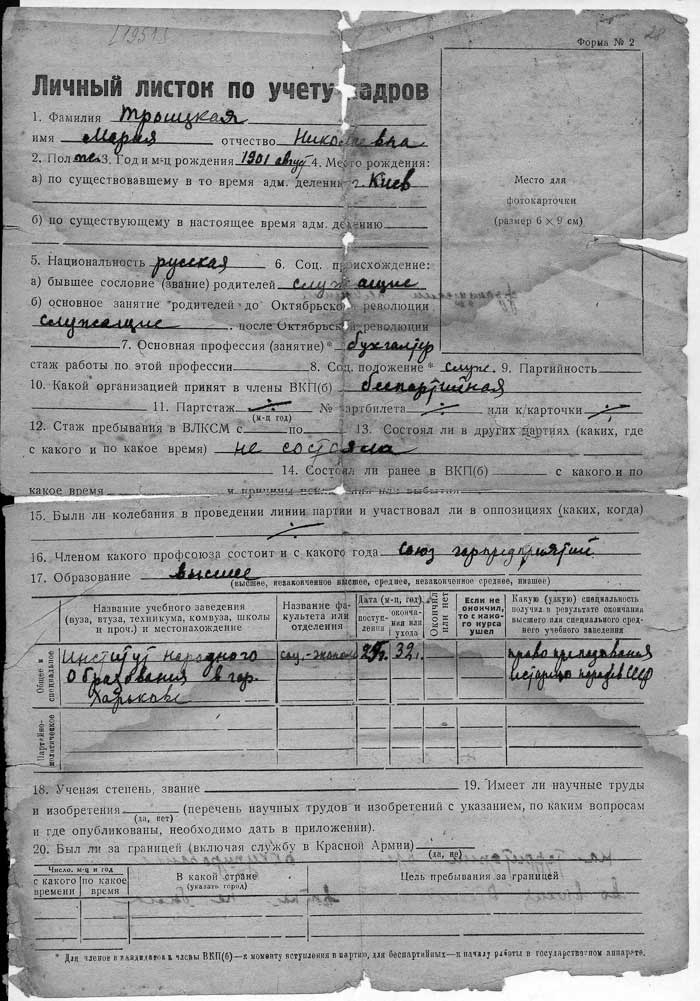 [1951]
28
Форма № 2
Личный листок по учету кадров
1. Фамилия Троицкая
имя Мария отчество Николаевна
2. Пол ж. 3. Год и м-ц рождения 1901 август 4. Место рождения:
а) по существовавшему в то время адм. делению г. Киев
б) по существующему в настоящее время адм. делению
Место для
фотокарточки
(размер 6 × 9 см)
5. Национальность русская 6. Соц. происхождение:
а) бывшее сословие (звание) родителей служащие
б) основное занятие родителей до Октябрьской революции
служащие после Октябрьской революции
7. Основная профессия (занятие) * бухгалтер
стаж работы по этой профессии 8. Соц. положение * служ. 9. Партийность
10. Какой организацией принят в члены ВКП(б) беспартийная
11. Партстаж ÷ № партбилета ÷ или к/карточки ÷
(м-ц год)
12. Стаж пребывания в ВЛКСМ с по 13. Состоял ли в других партиях (каких, где
с какого и по какое время) не состояла
14. Состоял ли ранее в ВКП(б) с какого и по
какое время и причины выбытия
15. Были ли колебания в проведении линии партии и участвовал ли в оппозициях (каких, когда)
÷
16. Членом какого профсоюза состоит и с какого года союз горпредприятий
17. Образование высшее
(высшее, незаконченное высшее, среднее, незаконченное среднее, низшее)
Название учебного заведения (вуза, втуза, техникума, комвуза, школы и проч.) и местонахождение
Название факультета или отделения
Дата (м-ц, год)
поступления
окончания или ухода
Окончил или нет
Если не окончил, то с какого курса ушел
Какую (узкую) специальность получил в результате окончания высшего или специального сред. учебного заведения
Общее и специальное
Институт народного соц.-эконом 29г. 32г. право преподавания
Образования в гор. историю
Харькове
Партийно-политическое
18. Ученая степень, звание 19. Имеет ли научные труды
и изобретения (перечень научных трудов и изобретений с указанием, по каким вопросам
(да, нет)
и где опубликованы, необходимо дать в приложении).
20. Был ли за границей (включая службу в Красной Армии)
(да, не)
Число, м-ц и год
с какого времени
по какое время
В какой стране
(указать город)
Цель пребывания за границей
* Для членов и кандидатов в члены ВКП(б)—к моменту вступления в партию, для беспартийных—к началу работы в государственном аппарате.